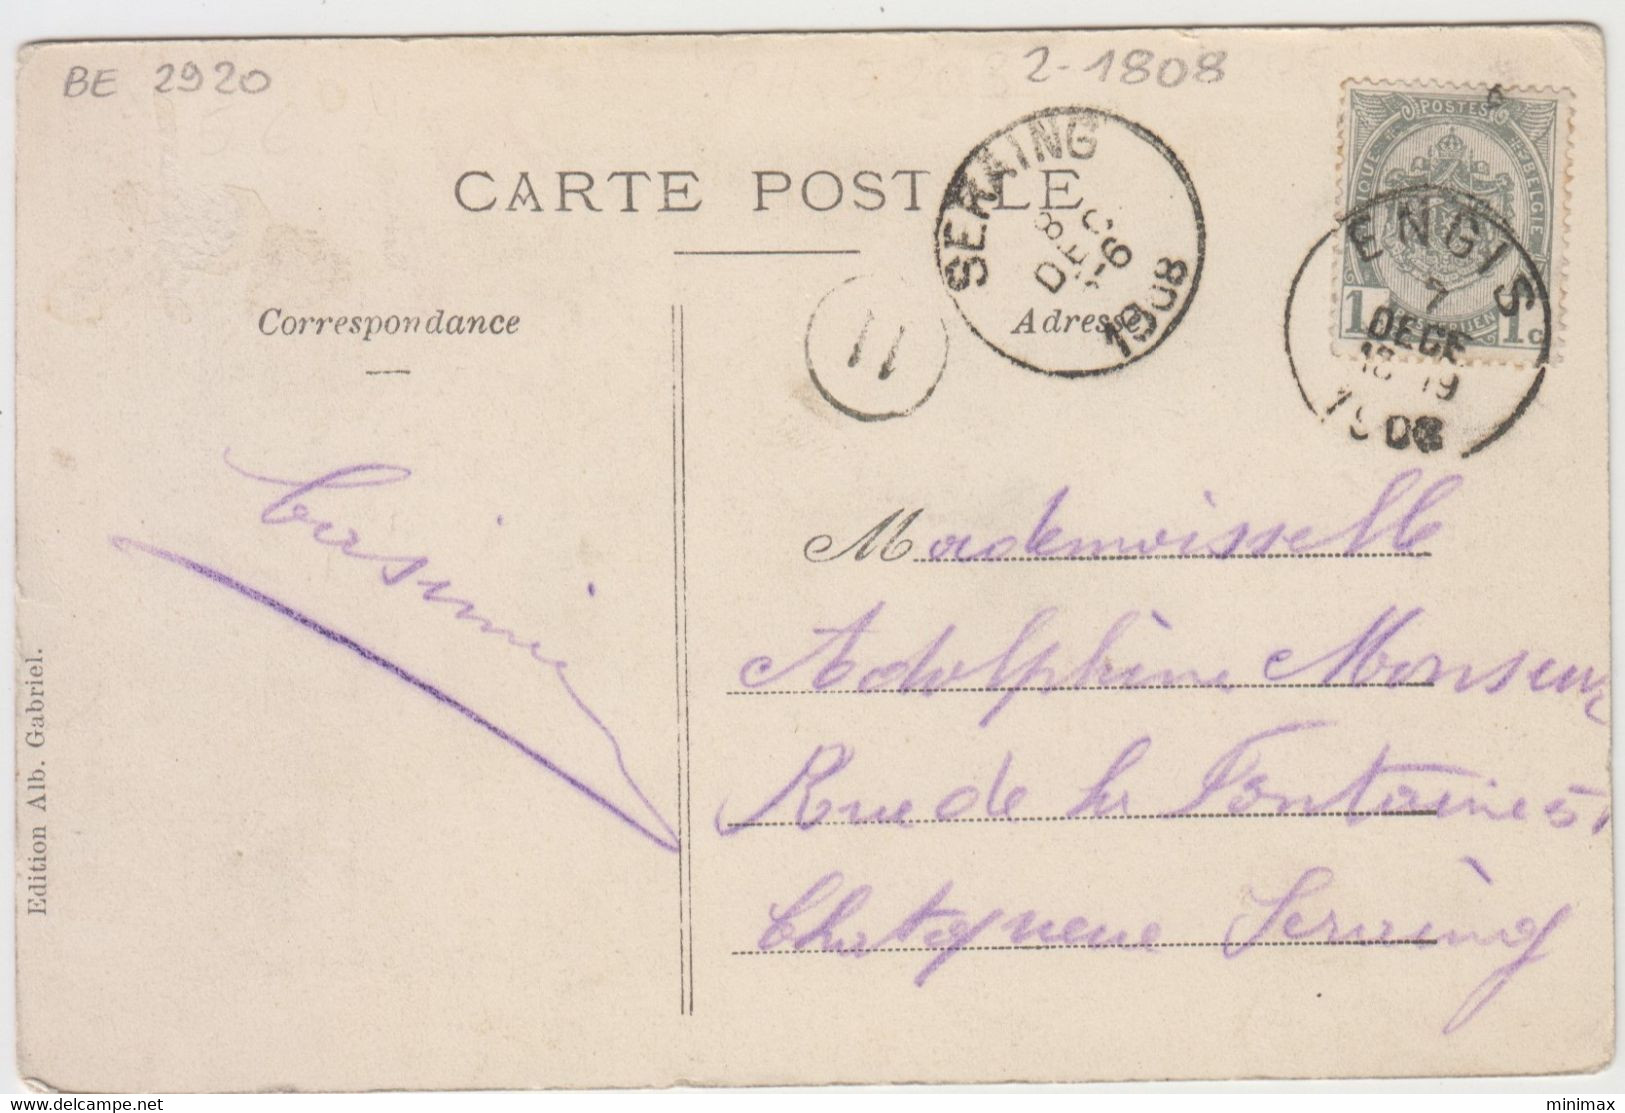 BE 2920
2-1808
POSTES
BELGIQUE
BELGIE
1 c 1 c
CARTE POSTALE
SERAING
8 DEC
5-6
1908
ENGIS
7
DECE
18-19
1908
11
Correspondance
Adresse
Casimir
Mademoisselle
Adolphine
Rue de la Fontaine 51
Chatqueue Seraing
Edition Alb. Gabriel.
www.delcampe.net
minimax